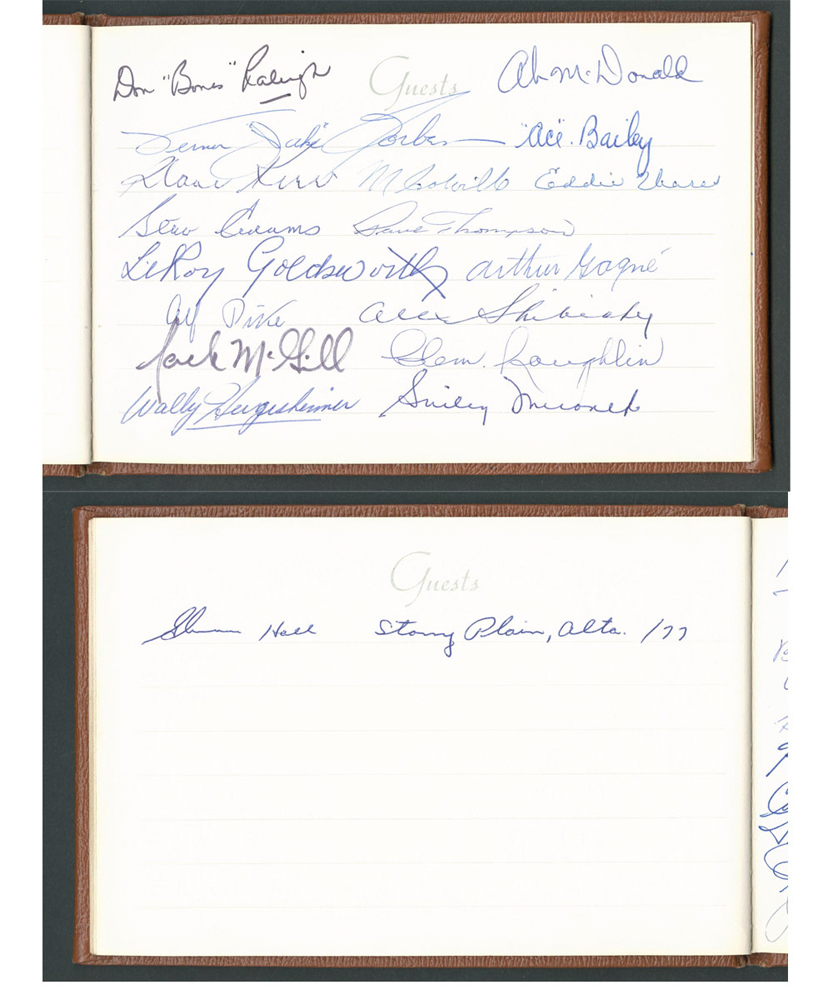 Don "Bones" Raleigh Guests Ab McDonald
Vernor "Jake" Forbes "Ace" Bailey
Dave Kerr M Colville Eddie Shore
Stew Adams Paul Thompson
LeRoy Goldsworthy Arthur Gagné
Alf Pike Alex Shibicky
Jack McGill Clem Loughlin
Wally Hergesheimer Smiley Meronek
Guests
Glenn Hall Stony Plain, Alta. /77